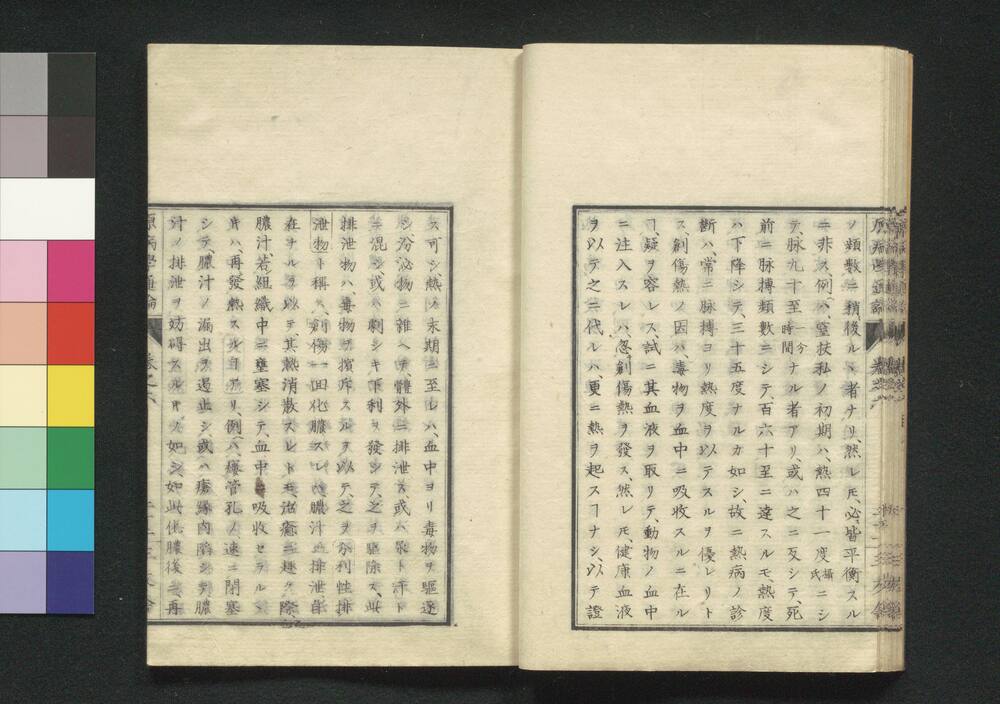 ノ類數ニ稍後ルヽ者ナリ、然レㇳモ、必、皆平衡スル
ニ非ス、例ヘハ、窒扶私ノ初期ハ、熱四十一度攝氏ニシ
テ、脉九十至一分時間ナル者アリ、或ハ之ニ反シテ、死
前ニ脉搏類數ニシテ、百六十至ニ達スルモ、熱度
ハ下降シテ、三十五度ナルカ如シ、故ニ熱病ノ診
斷ハ、常ニ脉搏ヨリ熱度ヲ以テスルヲ優レリト
ス、創傷熱ノ因ハ、毒物ヲ血中ニ吸收スルニ在ル
ヿ、疑ヲ容レス、試ニ其血液ヲ取リテ、動物ノ血中
ニ注入スレハ、忽創傷熱ヲ發ス、然レㇳモ、健康血液
ヲ以テ之ニ代ルハ、更ニ熱ヲ起スヿナシ、以テ證
ス可シ、熱ノ末期ニ至レハ、血中ヨリ毒物ヲ驅逐
シ、汾泌物ニ雜ヘテ、體外ニ排泄ス、或ハ尿ト汗ト
ニ混シ、或ハ劇シキ下利ヲ發シテ、之ヲ驅除ス、此
排泄物ハ、毒物ヲ擯斥スルヲ以テ、之ヲ分利性排
泄物ト稱ス、創傷一回化膿スレハ膿汁排泄、自
在ナルヲ以テ、其熱消散スレトモ、治癒ニ趣ク際
膿汁若組織中ニ壅塞シテ、血中吸收セラルヽ
キハ、再發熱スルヿアリ、例ヘハ、瘻管孔ノ速ニ閉塞
シテ、膿汁ノ漏出ヲ遏止シ、或ハ瘡緣肉膿
汁ノ排泄ヲ妨碍スルカ如シ、如此化膿後ニ再
原病學通論